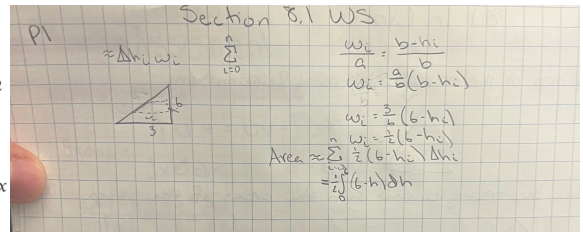 Section 8.1 WS
P1
≈Δhᵢ wᵢ
n
Σ
i=0
wᵢ/a = (b-hᵢ)/b
wᵢ = a/b (b-hᵢ)
6
wᵢ
3
wᵢ = 3/6 (6-hᵢ)
wᵢ = 1/2 (6-hᵢ)
Area ≈ Σ 1/2 (6-hᵢ) Δhᵢ
= 1/2 ∫₀⁶ (6-h) dh
x